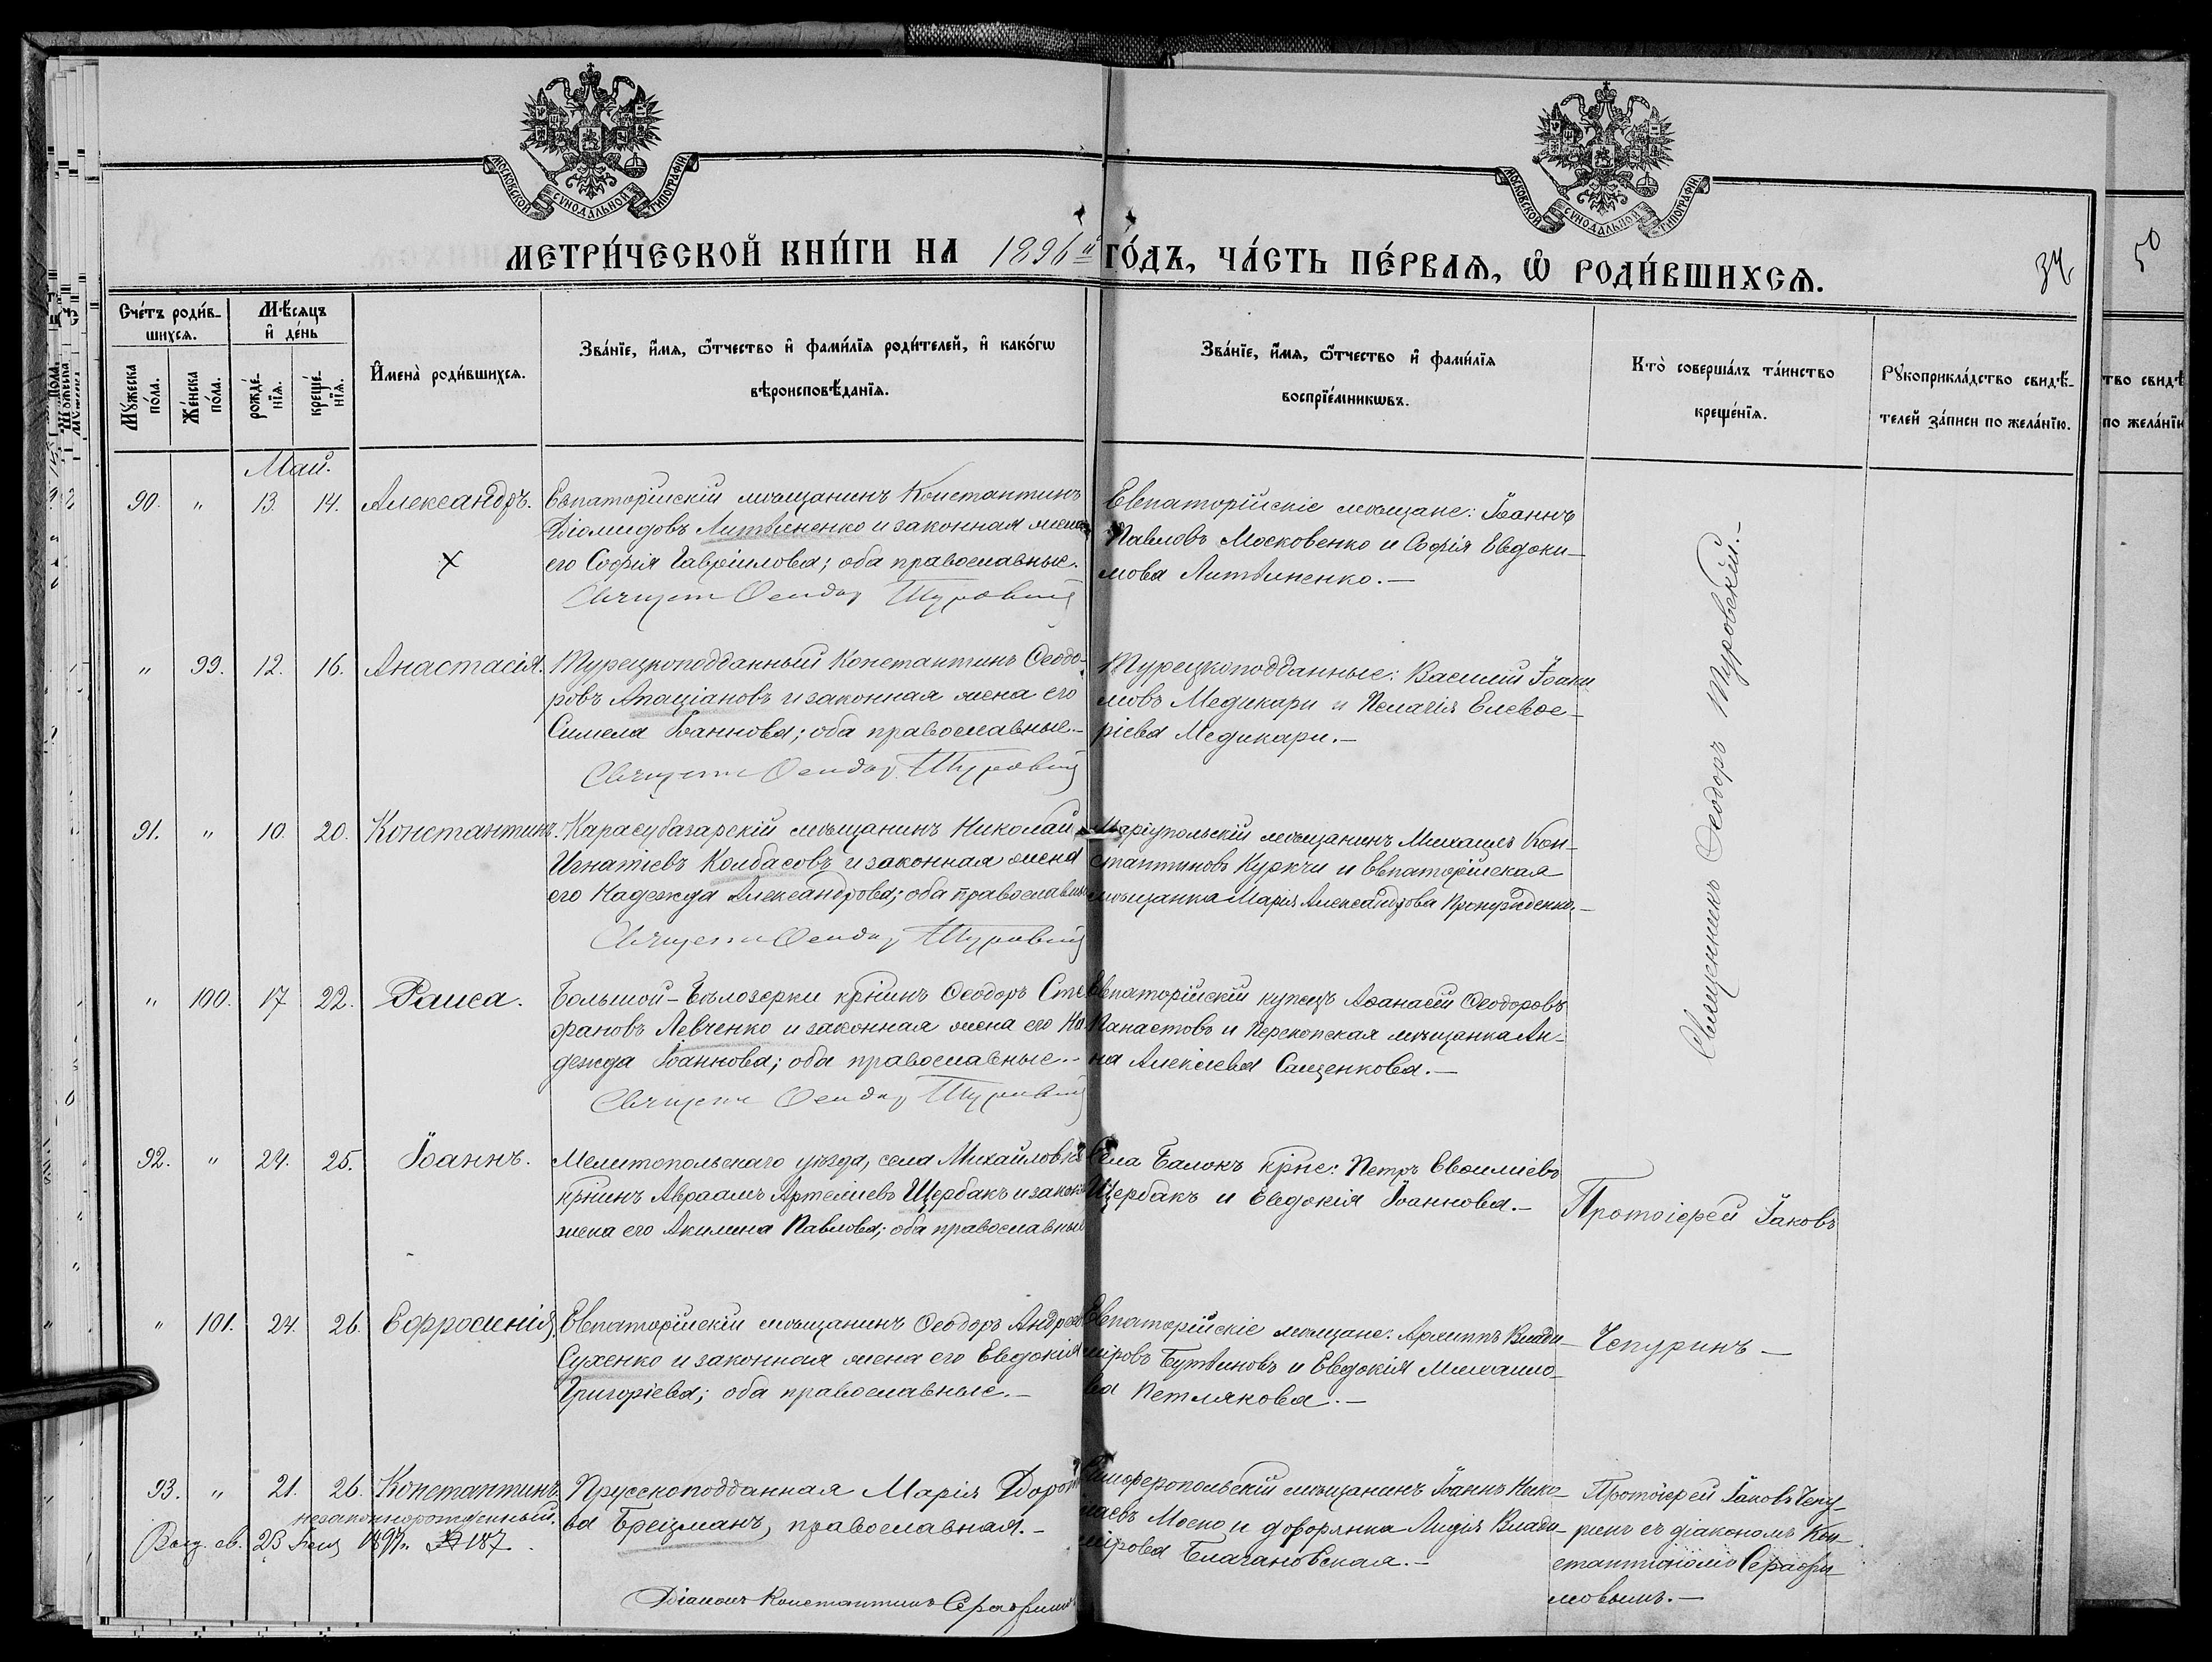 МОСКОВСКОЙ СѴНОДАЛЬНОЙ ТИПОГРАФІИ
МОСКОВСКОЙ СѴНОДАЛЬНОЙ ТИПОГРАФІИ
МЕТРИ́ЧЕСКОЙ КНИ́ГИ НА 1896й ГО́ДЪ, ЧА́СТЬ ПЕ́РВАЯ, Ѡ РОДИ́ВШИХСЯ.
50
Сче́тъ роди́в-
шихся.
Мѣ́сяцъ
и де́нь
Му́жеска по́ла.
Же́нска по́ла.
рожде́-
нїя.
креще́-
нїя.
Имена̀ роди́вшихся.
Зва́нїе, и́мя, ѻ҆́тчество и фами́лїя роди́телей, и како́гѡ
вѣроисповѣ́данїя.
Зва́нїе, и́мя, ѻ҆́тчество и фами́лїя
воспрїе́мникѡвъ.
Кто̀ соверша́лъ та́инство
креще́нїя.
Рꙋкоприкла́дство свидѣ́-
телей за́писи по жела́нїю.
тво свидѣ́
по жела́нїю
Май.
90. " 13. 14. Александръ.
Евпаторійскій мѣщанинъ Константинъ
Діомидовъ Литвиненко и законная жена
его Софія Гавріилова; оба православные.
Священ Ѳеодор Туровскій
Евпаторійскіе мѣщане: Іоаннъ
Павловъ Московенко и Софія Евдоки-
мова Литвиненко.—
Священникъ Ѳеодоръ Туровскій.—
" 99. 12. 16. Анастасія.
Турецкоподданный Константинъ Ѳеодо-
ровъ Апаціановъ и законная жена его
Симела Іоаннова; оба православные.-
Священ Ѳеодор Туровскій
Турецкоподданные: Василій Іоаки
мовъ Медикари и Пелагія Елевѳе-
ріева Медикари.—
91. " 10. 20. Константинъ.
Карасубазарскій мѣщанинъ Николай
Игнатіевъ Колбасовъ и законная жена
его Надежда Александрова; оба православны
Священ Ѳеодор Туровскій
Маріупольскій мѣщанинъ Михаилъ Кон-
стантиновъ Куркчи и Евпаторійская
мѣщанка Марія Александрова
" 100. 17 22. Раиса.
Большой-Бѣлозерки крнинъ Ѳеодоръ Сте
фановъ Левченко и законная жена его На
дежда Іоаннова; оба православные.-
Священ Ѳеодор Туровскій
Евпаторійскій купецъ Аѳанасій Ѳеодоровъ
Панаетовъ и Перекопская мѣщанка Ан-
на Алексіева Сащенкова.—
92. " 24. 25. Іоаннъ.
Мелитопольскаго уѣзда, села Михайловки
крнинъ Авраамъ Артеміевъ Щербакъ и закон
жена его Акилина Павлова; оба православные
Села Балокъ крне: Петръ Евѳиміевъ
Щербакъ и Евдокія Іоаннова.—
Протоіерей Іаковъ
" 101. 24. 26. Евфросинія
Евпаторійскій мѣщанинъ Ѳеодоръ Андреев
Сухенко и законная жена его Евдокія
Григоріева; оба православные.—
Евпаторійскіе мѣщане: Архиппъ Влади-
міровъ Бутвиновъ и Евдокія Михаило-
ва Петлякова.—
Чепуринъ —
93. " 21. 26. Константинъ
незаконнорожденный.
Прусскоподданная Марія Дороте
ва Брецманъ, православная.-
Діаконъ Константинъ Серафимов
Симферопольскій мѣщанинъ Іоаннъ Нико-
лаевъ Моско и дворянка Лидія Влади-
мірова Благановская.—
Протоіерей Іаковъ Чепу-
ринъ съ діакономъ Кон-
стантиномъ Серафи-
мовымъ.—
№ 187